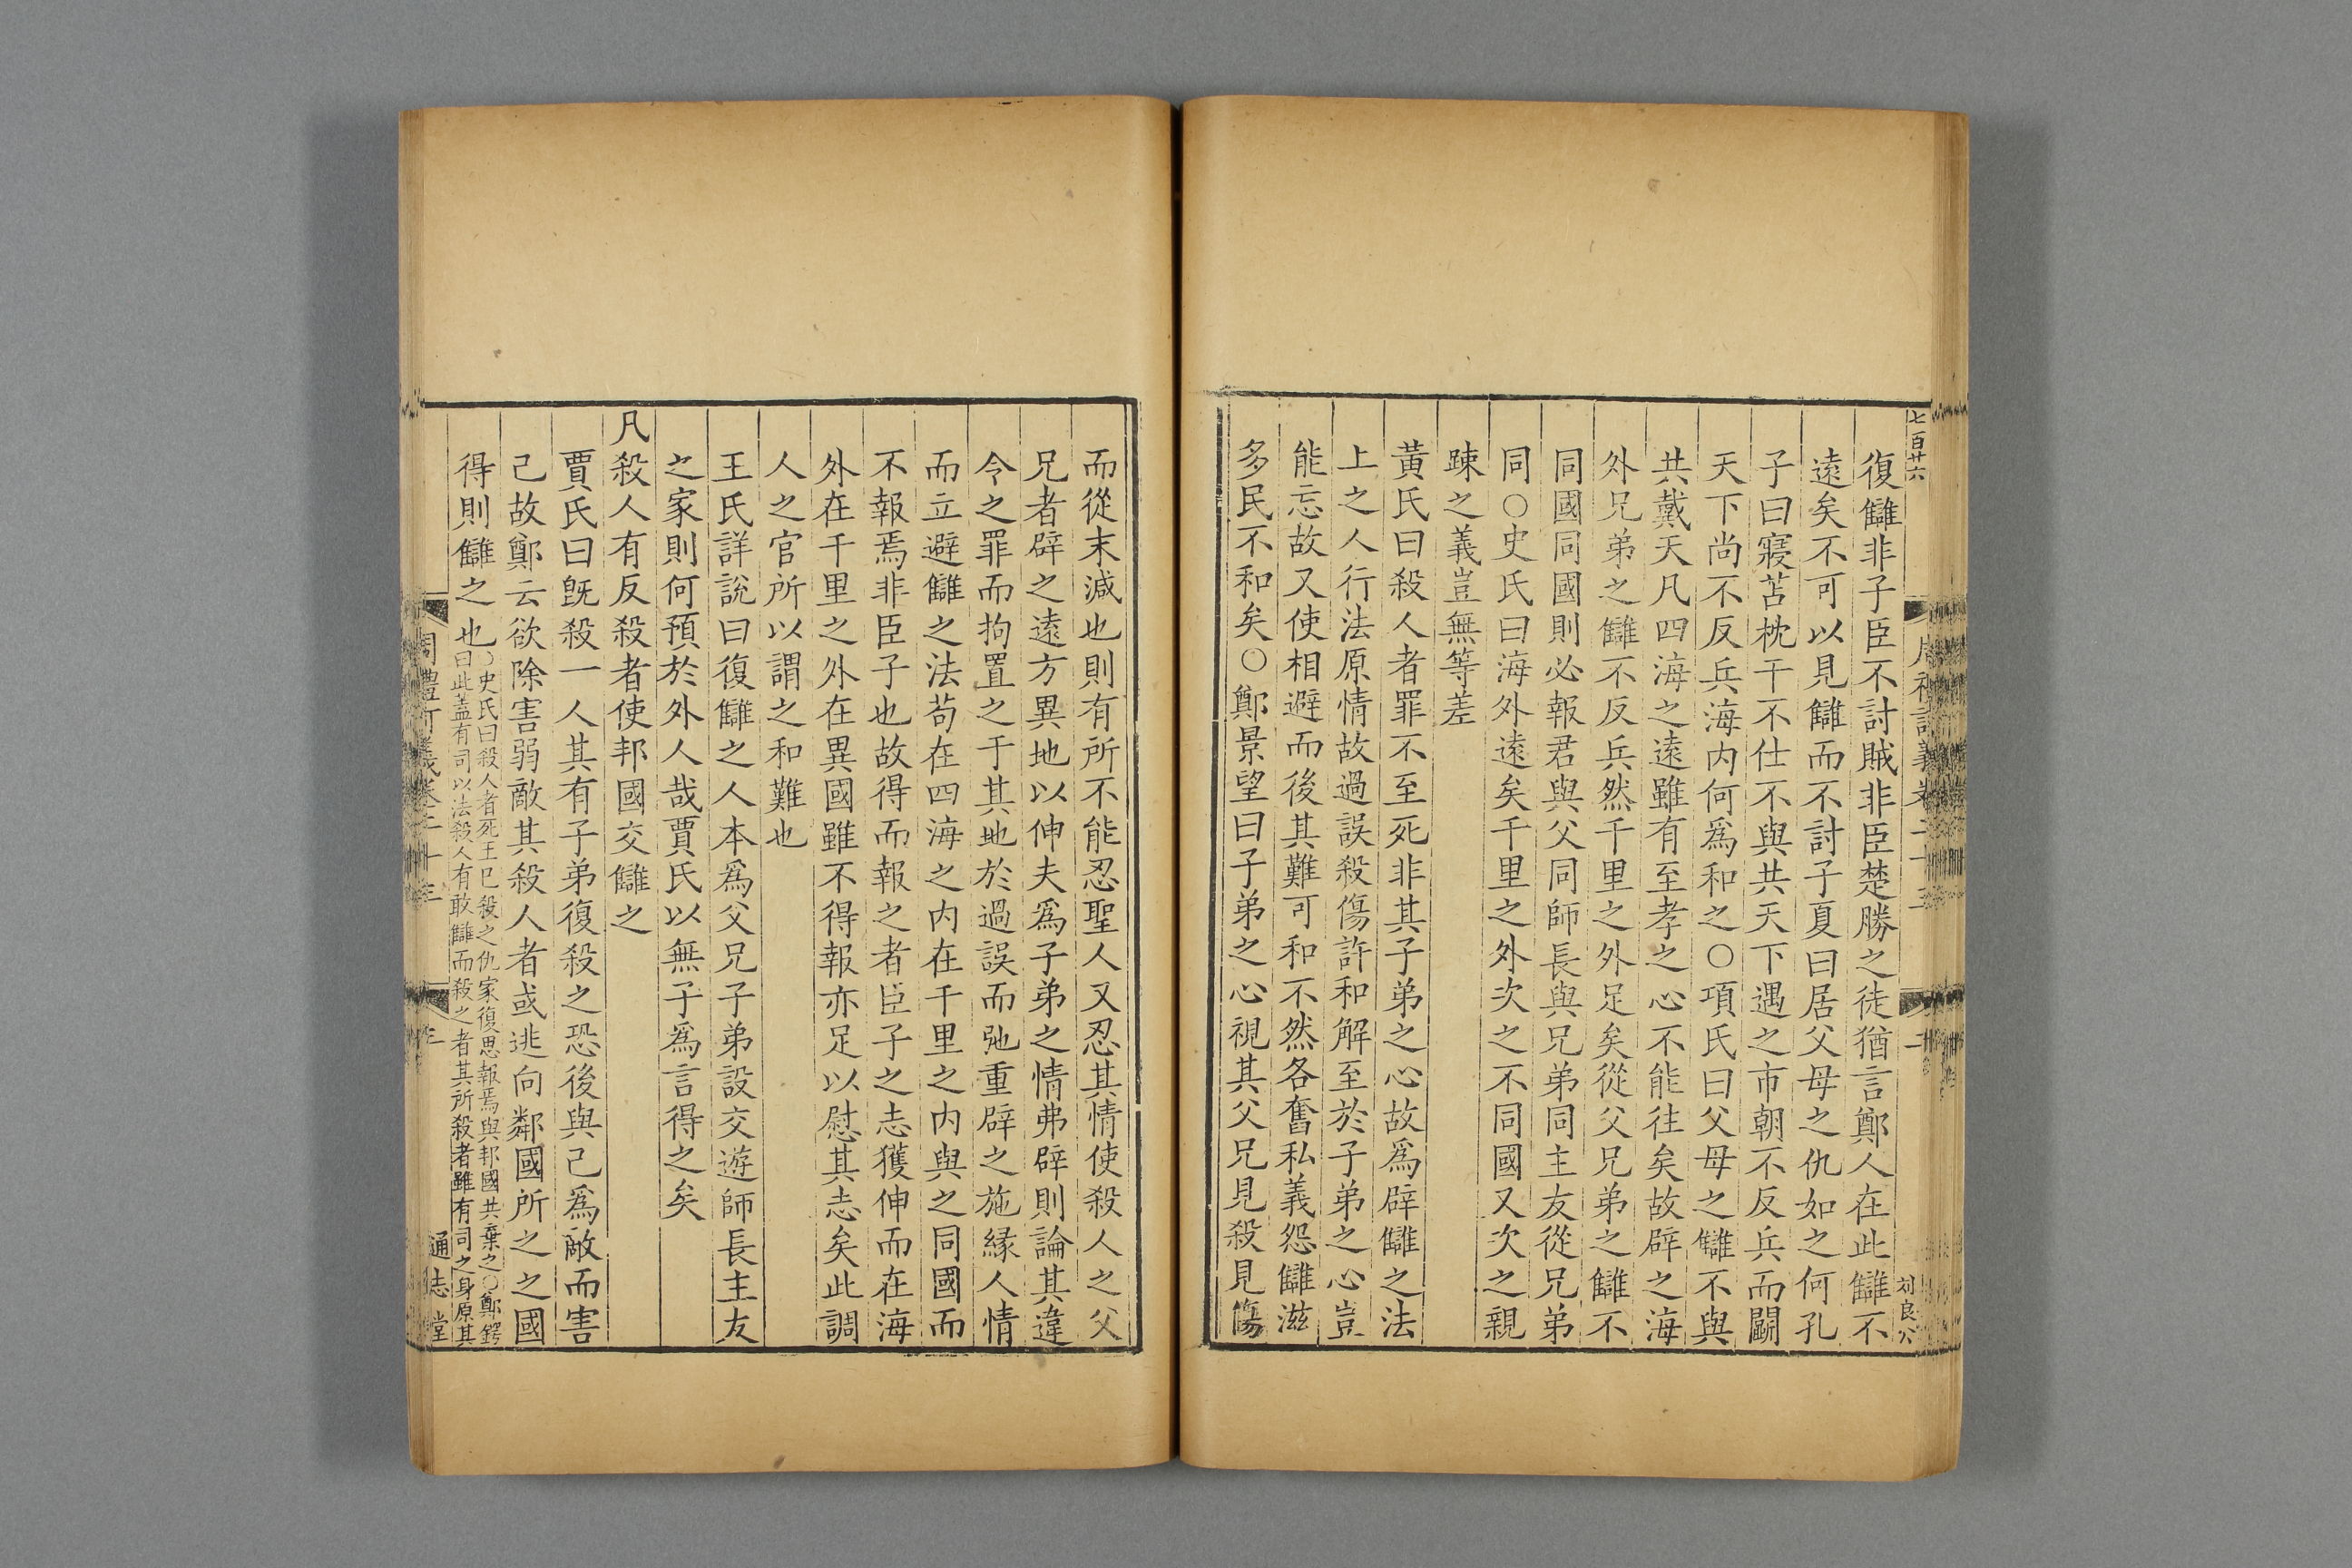 七百廿六
復讎非子臣不討賊非臣楚勝之徒猶言鄭人在此讎不
遠矣不可以見讎而不討子夏曰居父母之仇如之何孔
子曰寢苫枕干不仕不與共天下遇之市朝不反兵而鬭
天下尚不反兵海内何爲和之○項氏曰父母之讎不與
共戴天凡四海之遠雖有至孝之心不能往矣故辟之海
外兄弟之讎不反兵然千里之外足矣從父兄弟之讎不
同國同國則必報君與父同師長與兄弟同主友從兄弟
同○史氏曰海外遠矣千里之外次之不同國又次之親
踈之義豈無等差
黃氏曰殺人者罪不至死非其子弟之心故爲辟讎之法
上之人行法原情故過誤殺傷許和解至於子弟之心豈
能忘故又使相避而後其難可和不然各奮私義怨讎滋
多民不和矣○鄭景望曰子弟之心視其父兄見殺見傷
而從末減也則有所不能忍聖人又忍其情使殺人之父
兄者辟之遠方異地以伸夫爲子弟之情弗辟則論其違
令之罪而拘置之于其地於過誤而弛重辟之施緣人情
而立避讎之法苟在四海之内在千里之内與之同國而
不報焉非臣子也故得而報之者臣子之志獲伸而在海
外在千里之外在異國雖不得報亦足以慰其志矣此調
人之官所以謂之和難也
王氏詳說曰復讎之人本爲父兄子弟設交遊師長主友
之家則何預於外人哉賈氏以無子爲言得之矣
凡殺人有反殺者使邦國交讎之
賈氏曰旣殺一人其有子弟復殺之恐後與己爲敵而害
己故鄭云欲除害弱敵其殺人者或逃向鄰國所之之國
得則讎之也○史氏曰殺人者死王已殺之仇家復思報焉與邦國共棄之○鄭鍔
曰此蓋有司以法殺人有敢讎而殺之者其所殺者雖有司之身原其
通志堂